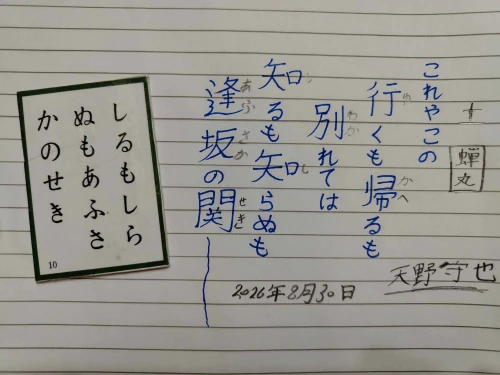 十
蝉丸
これやこの
行くも帰るも
別れては
知るも知らぬも
逢坂の関
天野守也
2026年8月30日
しるもしら
ぬもあふさ
かのせき
10